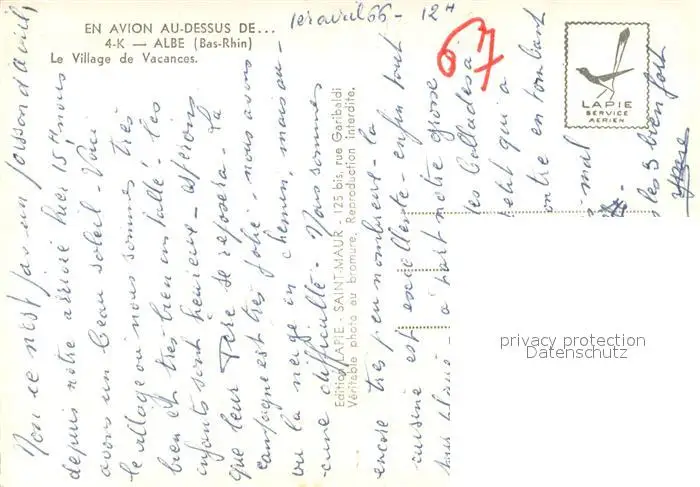 EN AVION AU-DESSUS DE...
4-K — ALBE (Bas-Rhin)
Le Village de Vacances.
1er avril 66 - 12H
67
LAPIE
SERVICE
AERIEN
Non ce n'est pas un poisson d'avril,
depuis notre arrivée hier 15H nous
avons un beau soleil - Voici
le village où nous sommes très
bien et très bien installé. les
enfants sont heureux - espérons
que leur Père se reposera - La
campagne est très jolie, nous avons
vu la neige en chemin, mais au-
-cune difficulté. Nous sommes
encore très peu nombreux - la
cuisine est excellente - enfin tout
à part notre grosse
les ballades à
petit qui a
montre en tombant
mal
les 3 bien fort
Edition LAPIE - SAINT-MAUR - 125 bis, rue Garibaldi
Véritable photo au bromure. Reproduction interdite.
privacy protection
Datenschutz